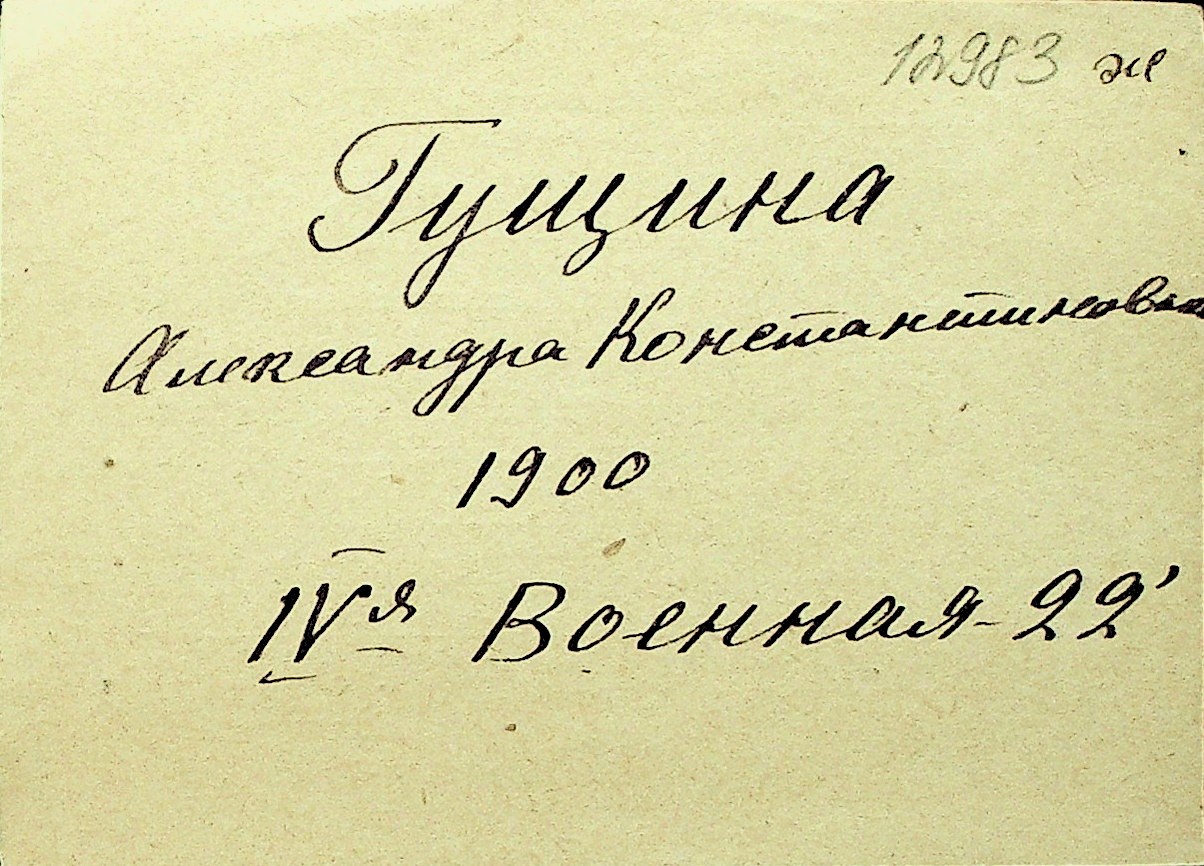 12983 же
Гущина
Александра Константиновна
1900
IVя Военная-22'